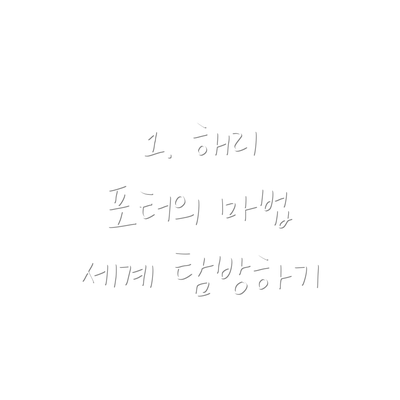 1. 해리
포터의 마법
세계 탐방하기